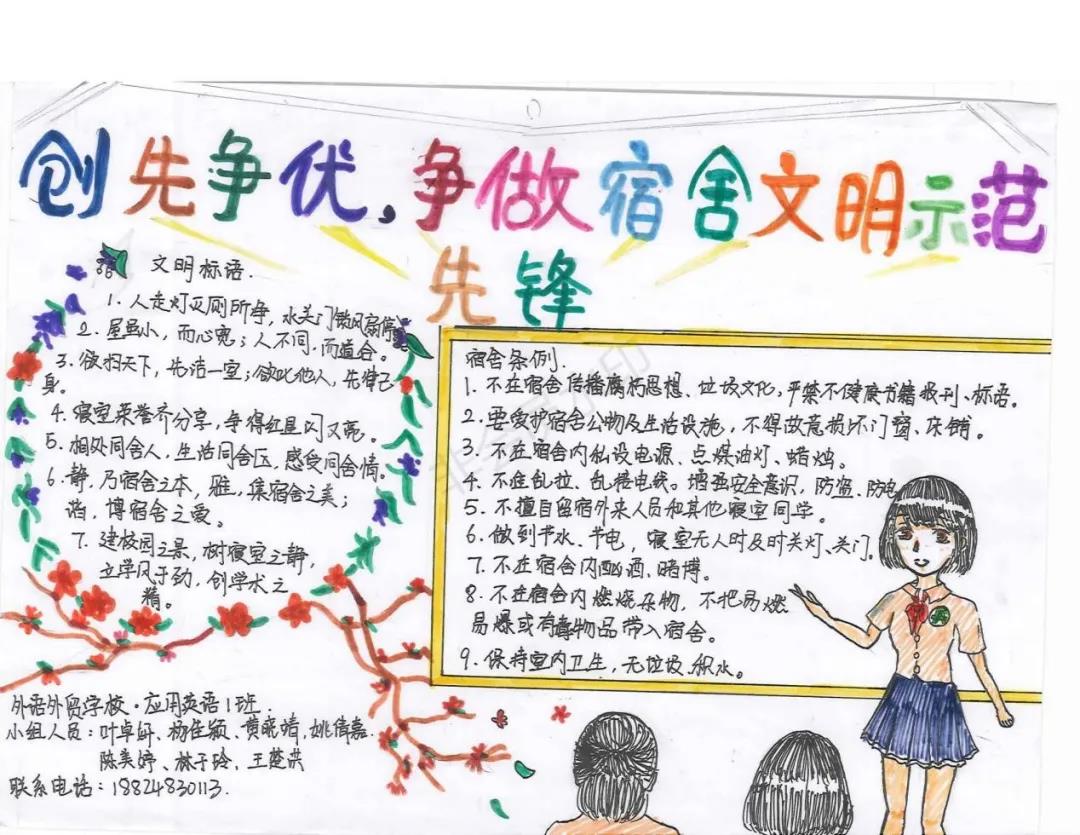 创先争优，争做宿舍文明示范
先锋
文明标语.
1. 人走灯灭厕所净，水关门锁风扇停。
2. 屋虽小，而心宽；人不同，而道合。
3. 欲扫天下，先洁一室；欲比他人，先律己
身。
4. 寝室荣誉齐分享，争得红星闪又亮。
5. 相处同舍人，生活同舍区，感受同舍情。
6. 静，乃宿舍之本，雅，集宿舍之美；
谐，博宿舍之爱。
7. 建校园之景，树寝室之静，
立学风于劲，创学术之
精。
外语外贸学校·应用英语1班.
小组人员：叶卓妍、杨佳颖、黄晓晴、姚倩嘉.
陈美婷、林于玲、王楚洪
联系电话：18824830113.
宿舍条例.
1. 不在宿舍传播腐朽思想、垃圾文化，严禁不健康书籍报刊、标语。
2. 要爱护宿舍公物及生活设施，不得故意损坏门窗、床铺。
3. 不在宿舍内私设电源、点煤油灯、蜡烛。
4. 不在乱拉、乱搭电线。增强安全意识，防盗、防电
5. 不擅自留宿外来人员和其他寝室同学。
6. 做到节水、节电，寝室无人时及时关灯、关门.
7. 不在宿舍内酗酒、赌博。
8. 不在宿舍内燃烧杂物，不把易燃
易爆或有毒物品带入宿舍。
9. 保持室内卫生，无垃圾、积水。